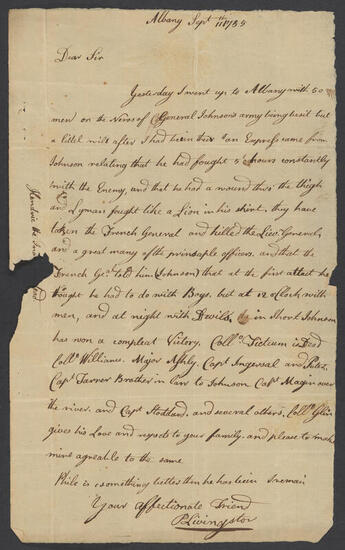 Albany Sept 11th 1755
Dear Sir
Yesterday I went up to Albany with 50
men on the News of General Johnson's army being besit but
a littel wilt after I had been there an Express came from
Johnson relating that he had fought 5 hours constantly
with the Enemy, and that he had a wound thro' the thigh
and Lyman fought like a Lion in his shirt, they have
taken the French General and killed the Lieu. General,
and a great many of the prinsaple officers, and that the
French Gen. told him (Johnson) that at the first attact he
thought he had to do with Boys, but at 12 oClock with
men, and at night with Devils, in Short Johnson
has won a compleat Victory. Collo. Tictcum is Dead
Collo. Williams. Major Ashly. Capt Ingersal and Putz.
Capt Farrer Brother in Law to Johnson Capt Magin over
the river, and Capt Stoddard, and several others, Collo. Glin
gives his Love and respets to your family, and please to mak
mine agreable to the same
Phile is something better then he has been I remain
Your affectionate Friend
P Livingston
Hendrick the